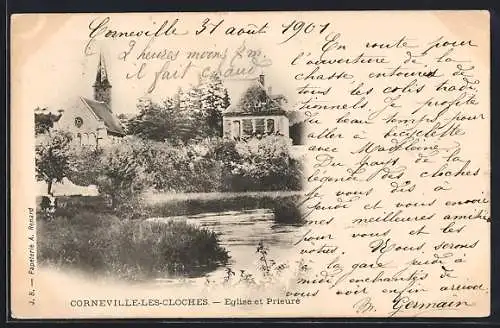 Corneville 31 août 1901
2 heures moins ¼
il fait chaud
En route pour
l'ouverture de la
chasse entourés de
tous les colis tradi
tionnels Je profite
du beau temps pour
aller à bicyclette
avec Madeleine
Du pays de la
légende des cloches
je vous dis à
jeudi et vous envoie
mes meilleures amitiés
pour vous et les
vôtres. Nous serons
à la gare jeudi à
midi enchantés de
vous voir enfin arriver
Germain
J. B. — Papeterie A. Renard
CORNEVILLE-LES-CLOCHES. — Eglise et Prieuré